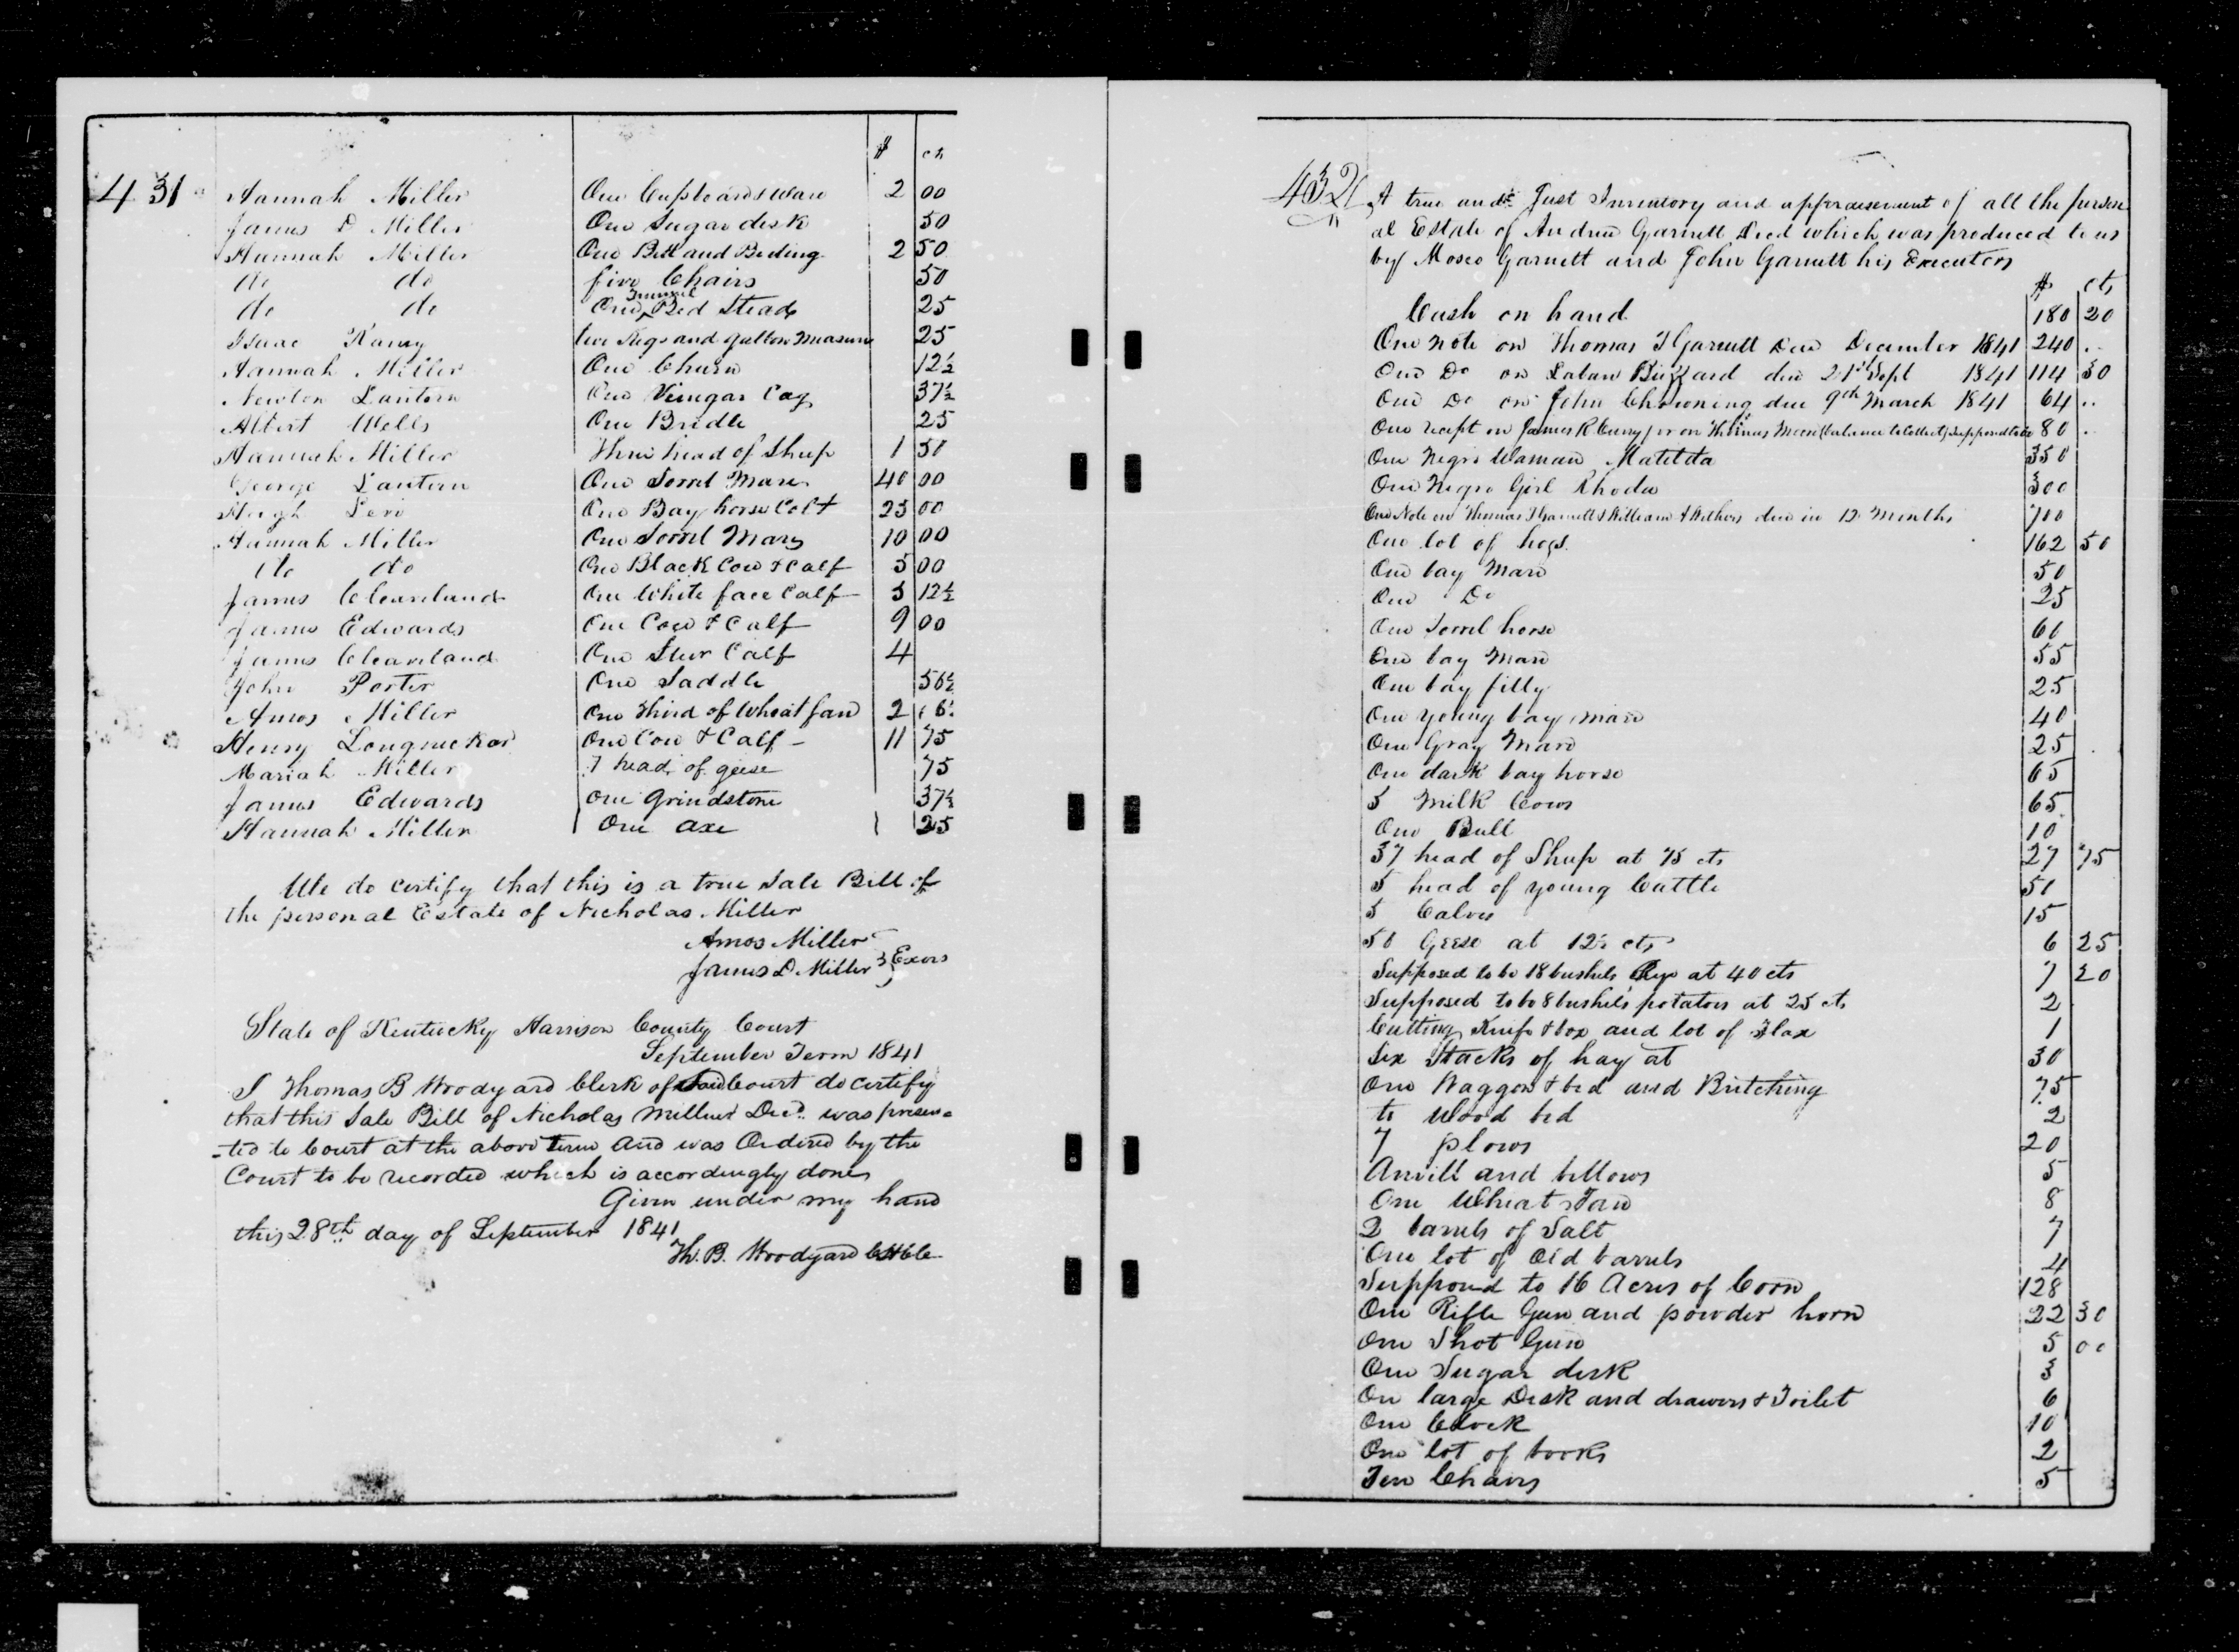 $ cts
431 Hannah Miller One Cupboard & ware 2 00
James D Miller One Sugar desk 50
Hannah Miller One Bed and Beding 2 50
do do five Chairs 50
do do One Trunnel Bed Stead 25
Isaac Raney two Jugs and gallon measure 25
Hannah Miller One Churn 12½
Newton Lantern One Vinegar Cag 37½
Albert Wells One Bridle 25
Hannah Miller Three head of Sheep 1 50
George Lantern One Sorrel Mare 40 00
Hugh Levi One Bay horse Colt 25 00
Hannah Miller One Sorrel Mare 10 00
do do One Black Cow & Calf 5 00
James Cleaveland One White face Calf 3 12½
James Edwards One Cow & Calf 9 00
James Cleaveland One Steer Calf 4
John Porter One Saddle 56½
Amos Miller One third of Wheat fan 2
Henry Longnecker One Cow & Calf 11 75
Mariah Miller 7 head of geese 75
James Edwards One Grindstone 37½
Hannah Miller One axe 25
We do certify that this is a true Sale Bill of
the personal Estate of Nicholas Miller
Amos Miller
James D. Miller } Exors
State of Kentucky Harrison County Court
September Term 1841
I Thomas B Woodyard Clerk of Said Court do certify
that this Sale Bill of Nicholas Miller Decd. was presen=
=ted to Court at the above term and was Ordered by the
Court to be recorded which is accordingly done
Given under my hand
this 28th day of September 1841
Th. B. Woodyard
432 A true and Just Inventory and appraisement of all the person
al Estate of Andrew Garnett Decd which was produced to us
by Mosco Garnett and John Garnett his Executors
$ cts
Cash on hand 180 20
One note on Thomas T Garnett Due December 1841 240 ..
One Do on Laban Buzzard due 21st Sept 1841 114 30
One Do on John Chowning due 9th March 1841 64 ..
One recept on James R Curry for on Thomas Moore (balance to Collect) Supposed to be 80 ..
One Negro Woman Matilda 350
One Negro Girl Rhoda 300
One Note on Thomas T Garnett & William A Withers due in 12 Months 700
One lot of hogs 162 50
One bay Mare 50
One Do 25
One Sorrel horse 60
One bay Mare 55
One bay filly 25
One young bay mare 40
One Gray Mare 25
One dark bay horse 65
5 Milk Cows 65
One Bull 10
37 head of Sheep at 75 cts 27 75
5 head of young Cattle 50
5 Calves 15
50 Geese at 12½ cts 6 25
Supposed to be 18 bushels Rye at 40 cts 7 20
Supposed to be 8 bushels potatoes at 25 cts 2
Cutting Knife & box and lot of Flax 1
Six Stacks of hay at 30
One Waggon & bed and Britching 75
to Wood bed 2
7 plows 20
Anvill and bellows 5
One Wheat Fan 8
2 barrels of Salt 7
One lot of Old barrels 4
Supposed to 16 Acres of Corn 128
One Rifle Gun and powder horn 22 30
One Shot Gun 5 00
One Sugar desk 3
On large Desk and drawers & Toilet 6
One Clock 10
One lot of books 2
Ten Chairs 5